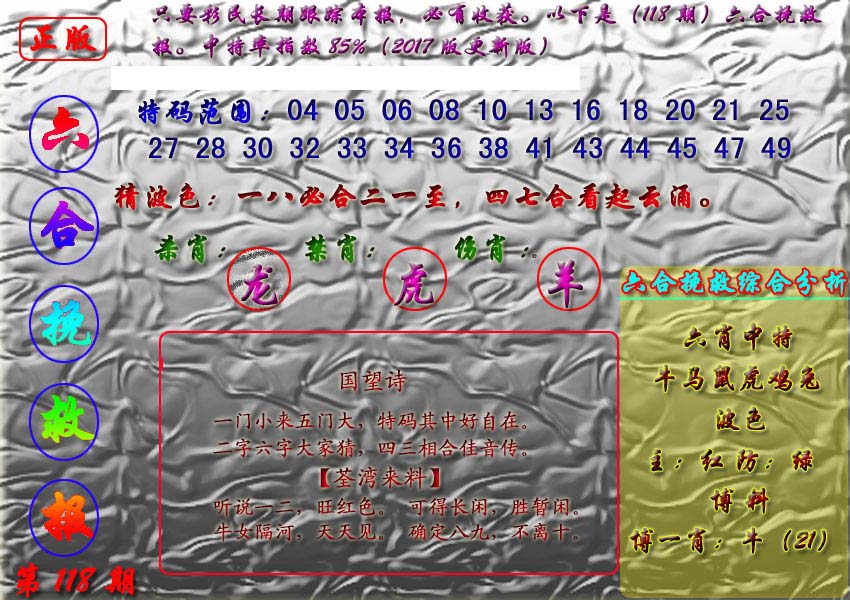 正版
只要彩民长期跟踪本报，必有收获。以下是（118期）六合挽救
报。中特率指数85%（2017版更新版）
六合挽救报
第118期
特码范围：04 05 06 08 10 13 16 18 20 21 25
27 28 30 32 33 34 36 38 41 43 44 45 47 49
猜波色：一八必合二一至，四七合看起云涌。
杀肖：龙 禁肖：虎 伤肖：羊
国望诗
一门小来五门大，特码其中好自在。
二字六字大家猜，四三相合佳音传。
【荃湾来料】
听说一二，旺红色。 可得长闲，胜暂闲。
牛女隔河，天天见。 确定八九，不离十。
六合挽救综合分析
六肖中特
牛马鼠虎鸡兔
波色
主：红防：绿
博料
博一肖：牛（21）